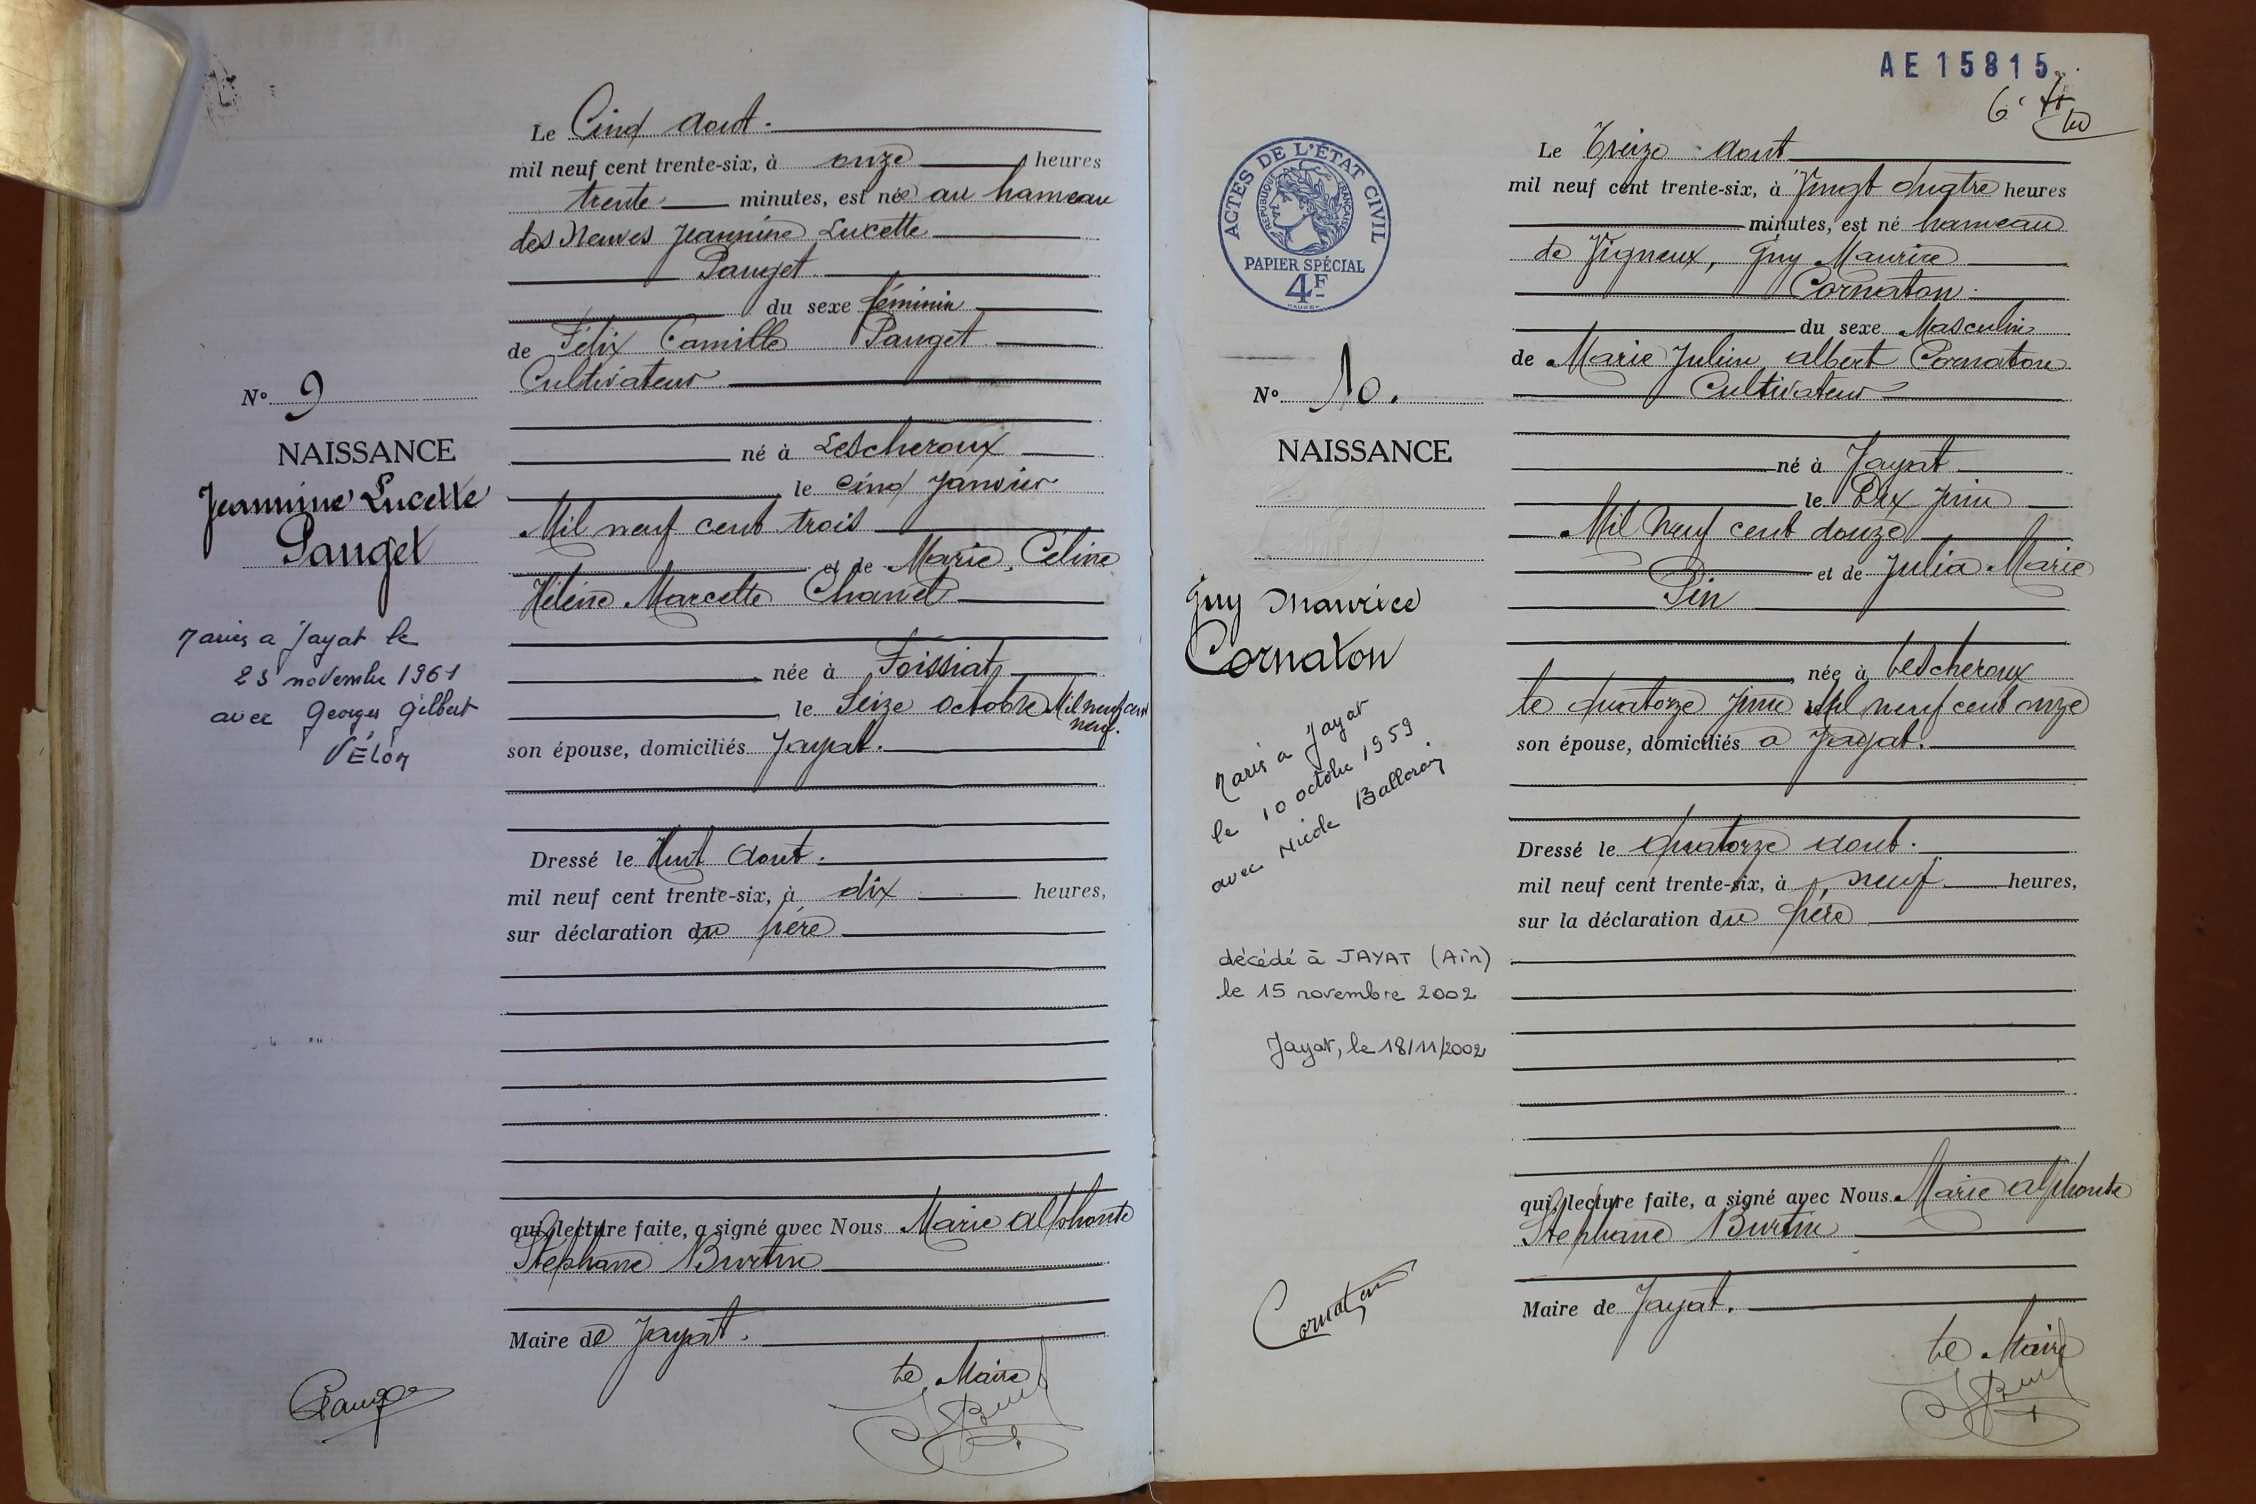 Le Cinq Aout.
mil neuf cent trente-six, à onze heures
trente minutes, est née au hameau
des Neuves Jeannine Lucette
Pauget
du sexe féminin
de Félix Camille Pauget
Cultivateur
né à Lescheroux
le cinq Janvier
Mil neuf cent trois
et de Marie, Céline
Hélène Marcelle Chanel
née à Foissiat
le Seize octobre Mil neuf cent
neuf.
son épouse, domiciliés Jayat.
Dressé le Huit Aout.
mil neuf cent trente-six, à dix heures,
sur déclaration du père
qui, lecture faite, a signé avec Nous Marie Alphonse
Stéphane Burtin
Maire de Jayat.
Le Maire
No 9
NAISSANCE
Jeannine Lucette
Pauget
Mariée a Jayat le
novembre 1961
avec Georges Gilbert
VÉLON
Pauget
AE15815
6e
Le Treize Aout
mil neuf cent trente-six, à Vingt quatre heures
minutes, est né hameau
de Vigneux, Guy Maurice
Cornaton.
du sexe Masculin
de Marie Julien Albert Cornaton
Cultivateur
né à Jayat
le Dix Juin
Mil neuf cent douze
et de Julia Marie
Pin
née à Lescheroux
le quatorze Juin Mil neuf cent onze
son épouse, domiciliés a Jayat.
Dressé le quatorze Aout.
mil neuf cent trente-six, à neuf heures,
sur la déclaration du père
qui, lecture faite, a signé avec Nous Marie Alphonse
Stéphane Burtin
Maire de Jayat.
Le Maire
ACTES DE L'ÉTAT CIVIL
RÉPUBLIQUE FRANÇAISE
PAPIER SPÉCIAL
4F
No 10.
NAISSANCE
Guy Maurice
Cornaton
Marié a Jayat
le 10 octobre 1959
avec Nicole
décédé à JAYAT (Ain)
le 15 novembre 2002
Jayat, le 18/11/2002
Cornaton